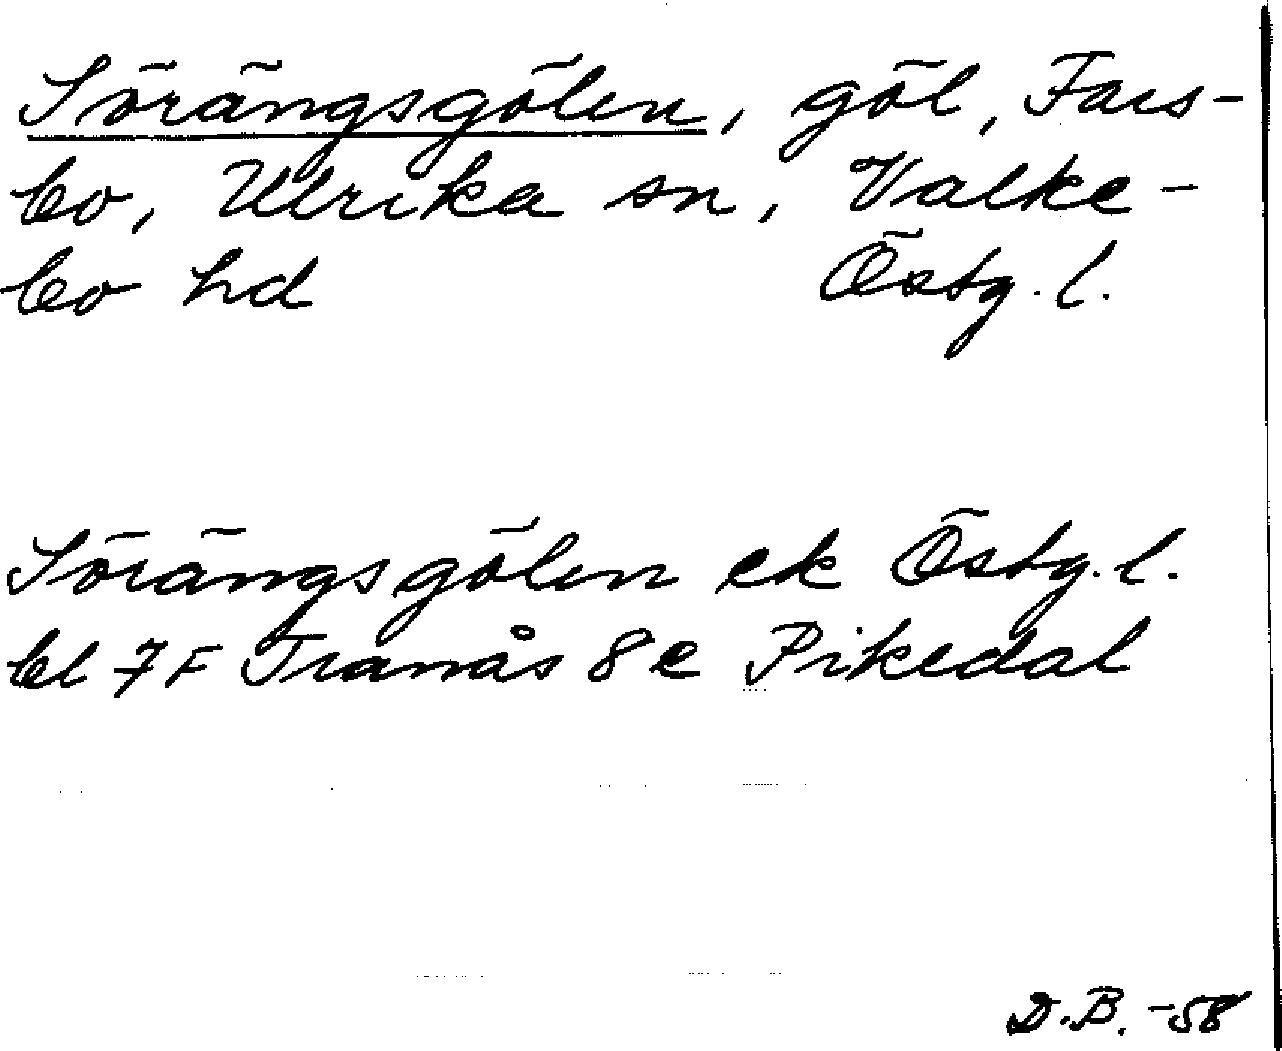 Sörängsgölen, göl, Fars-
bo, Ulrika sn, Valke-
bo hd Östg. l.
Sörängsgölen ek Östg. l.
bl 7F Tranås 8e Pikedal
D.B. -58